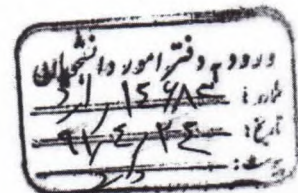 ورود به دفتر امور دانشجویان
شماره: ۱۵۶۸۳
تاریخ: ۹۱,۴,۲۴
پیوست: